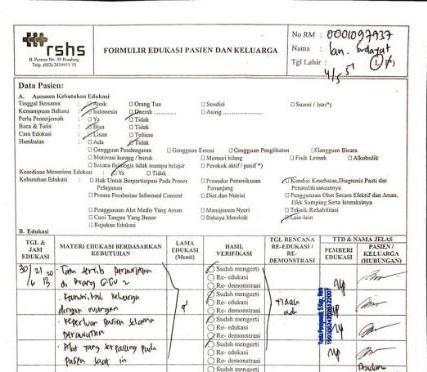 rshs
Jl. Pasteur No. 38 Bandung
FORMULIR EDUKASI PASIEN DAN KELUARGA
No RM : 0001097937
Nama :
Tgl Lahir :
Data Pasien:
A. Asesmen Kebutuhan Edukasi
Tinggal Bersama Anak Orang Tua Sendiri Suami / Istri*)
Kemampuan Bahasa Indonesia Daerah Asing
Perlu Penterjemah Ya Tidak
Baca & Tulis Bisa Tidak
Cara Edukasi Lisan Tulisan
Hambatan Ada Tidak
Gangguan Pendengaran Gangguan Emosi Gangguan Penglihatan Gangguan Bicara
Motivasi kurang / buruk Memori hilang Fisik Lemah Alkoholik
Secara fisiologis tidak mampu belajar Perokok aktif / pasif *)
Kesediaan Menerima Edukasi Ya Tidak
Kebutuhan Edukasi Hak Untuk Berpartisipasi Pada Proses Pelayanan Prosedur Pemeriksaan Penunjang Kondisi Kesehatan, Diagnosis Pasti dan Penatalaksanaannya
Proses Pemberian Informed Consent Diet dan Nutrisi Penggunaan Obat Secara Efektif dan Aman, Efek Samping Serta Interaksinya
Penggunaan Alat Medis Yang Aman Manajemen Nyeri Teknik Rehabilitasi
Cuci Tangan Yang Benar Bahaya Merokok Lain-lain
Rujukan Edukasi
B. Edukasi
TGL & JAM EDUKASI
MATERI EDUKASI BERDASARKAN KEBUTUHAN
LAMA EDUKASI (Menit)
HASIL VERIFIKASI
TGL RENCANA RE-EDUKASI / RE-DEMONSTRASI
TTD & NAMA JELAS
PEMBERI EDUKASI
PASIEN / KELUARGA (HUBUNGAN)
Tata tertib
di Ruang
keluarga
dengan
Keperluan pasien selama
perawatan
Alat yang terpasang pada
Pasien saat ini
Sudah mengerti
Re- edukasi
Re- demonstrasi
Sudah mengerti
Re- edukasi
Re- demonstrasi
Sudah mengerti
Re- edukasi
Re- demonstrasi
Sudah mengerti
Re- edukasi
Re- demonstrasi
Sudah mengerti
Tidak
ada